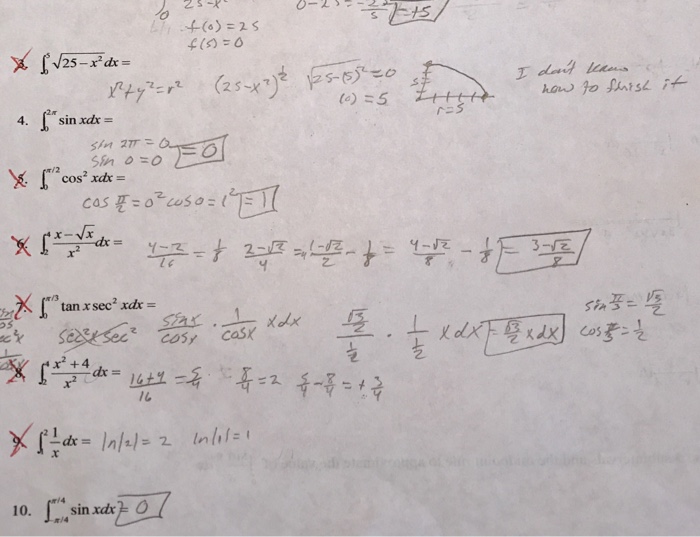 f(0) = 25
f(5) = 0
3. ∫₀⁵ √25 − x² dx =
x² + y² = r² (25 − x²)^½ √25 − (5)² = 0 I don't know
(0) = 5 r = 5 how to finish it
4. ∫₀^2π sin xdx =
sin 2π = 0
sin 0 = 0 = 0
5. ∫₀^π/2 cos² xdx =
cos π/2 = 0² cos 0 = 1² = 1
6. ∫₂⁴ (x − √x)/x² dx = (4 − 2)/16 = 1/8 (2 − √2)/4 = (1 − √2)/2 − 1/8 = (4 − √2)/8 − 1/8 = (3 − √2)/8
7. ∫₀^π/3 tan x sec² xdx =
sin π/3 = √3/2
cos π/3 = 1/2
sin x/cos x · 1/cos x x dx (√3/2)/(1/2) · 1/(1/2) x dx = √3/2 x dx
8. ∫₁⁴ (x² + 4)/x² dx = (16 + 4)/16 = 5/4 − 8/4 = 2 5/4 − 8/4 = + 3/4
9. ∫₁² 1/x dx = ln|2| = 2 ln|1| = 1
10. ∫₋π/4^π/4 sin xdx = 0